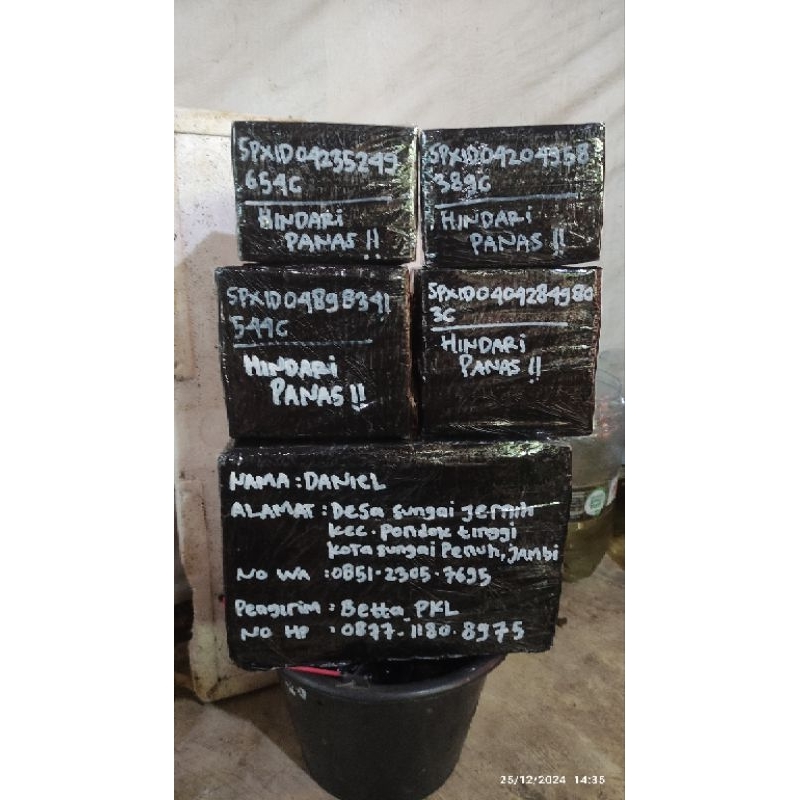 SPXID04235249
654C
HINDARI
PANAS !!
SPXID04204958
389C
HINDARI
PANAS !!
SPXID04898341
544C
HINDARI
PANAS !!
SPXID0404284980
3C
HINDARI
PANAS !!
NAMA : DANIEL
ALAMAT : Desa sungai Jernih
kec. Pondok tinggi
kota sungai Penuh, Jambi
NO WA : 0851-2305-7695
Pengirim : Betta PKL
NO HP : 0877-1180-8975
25/12/2024 14:35